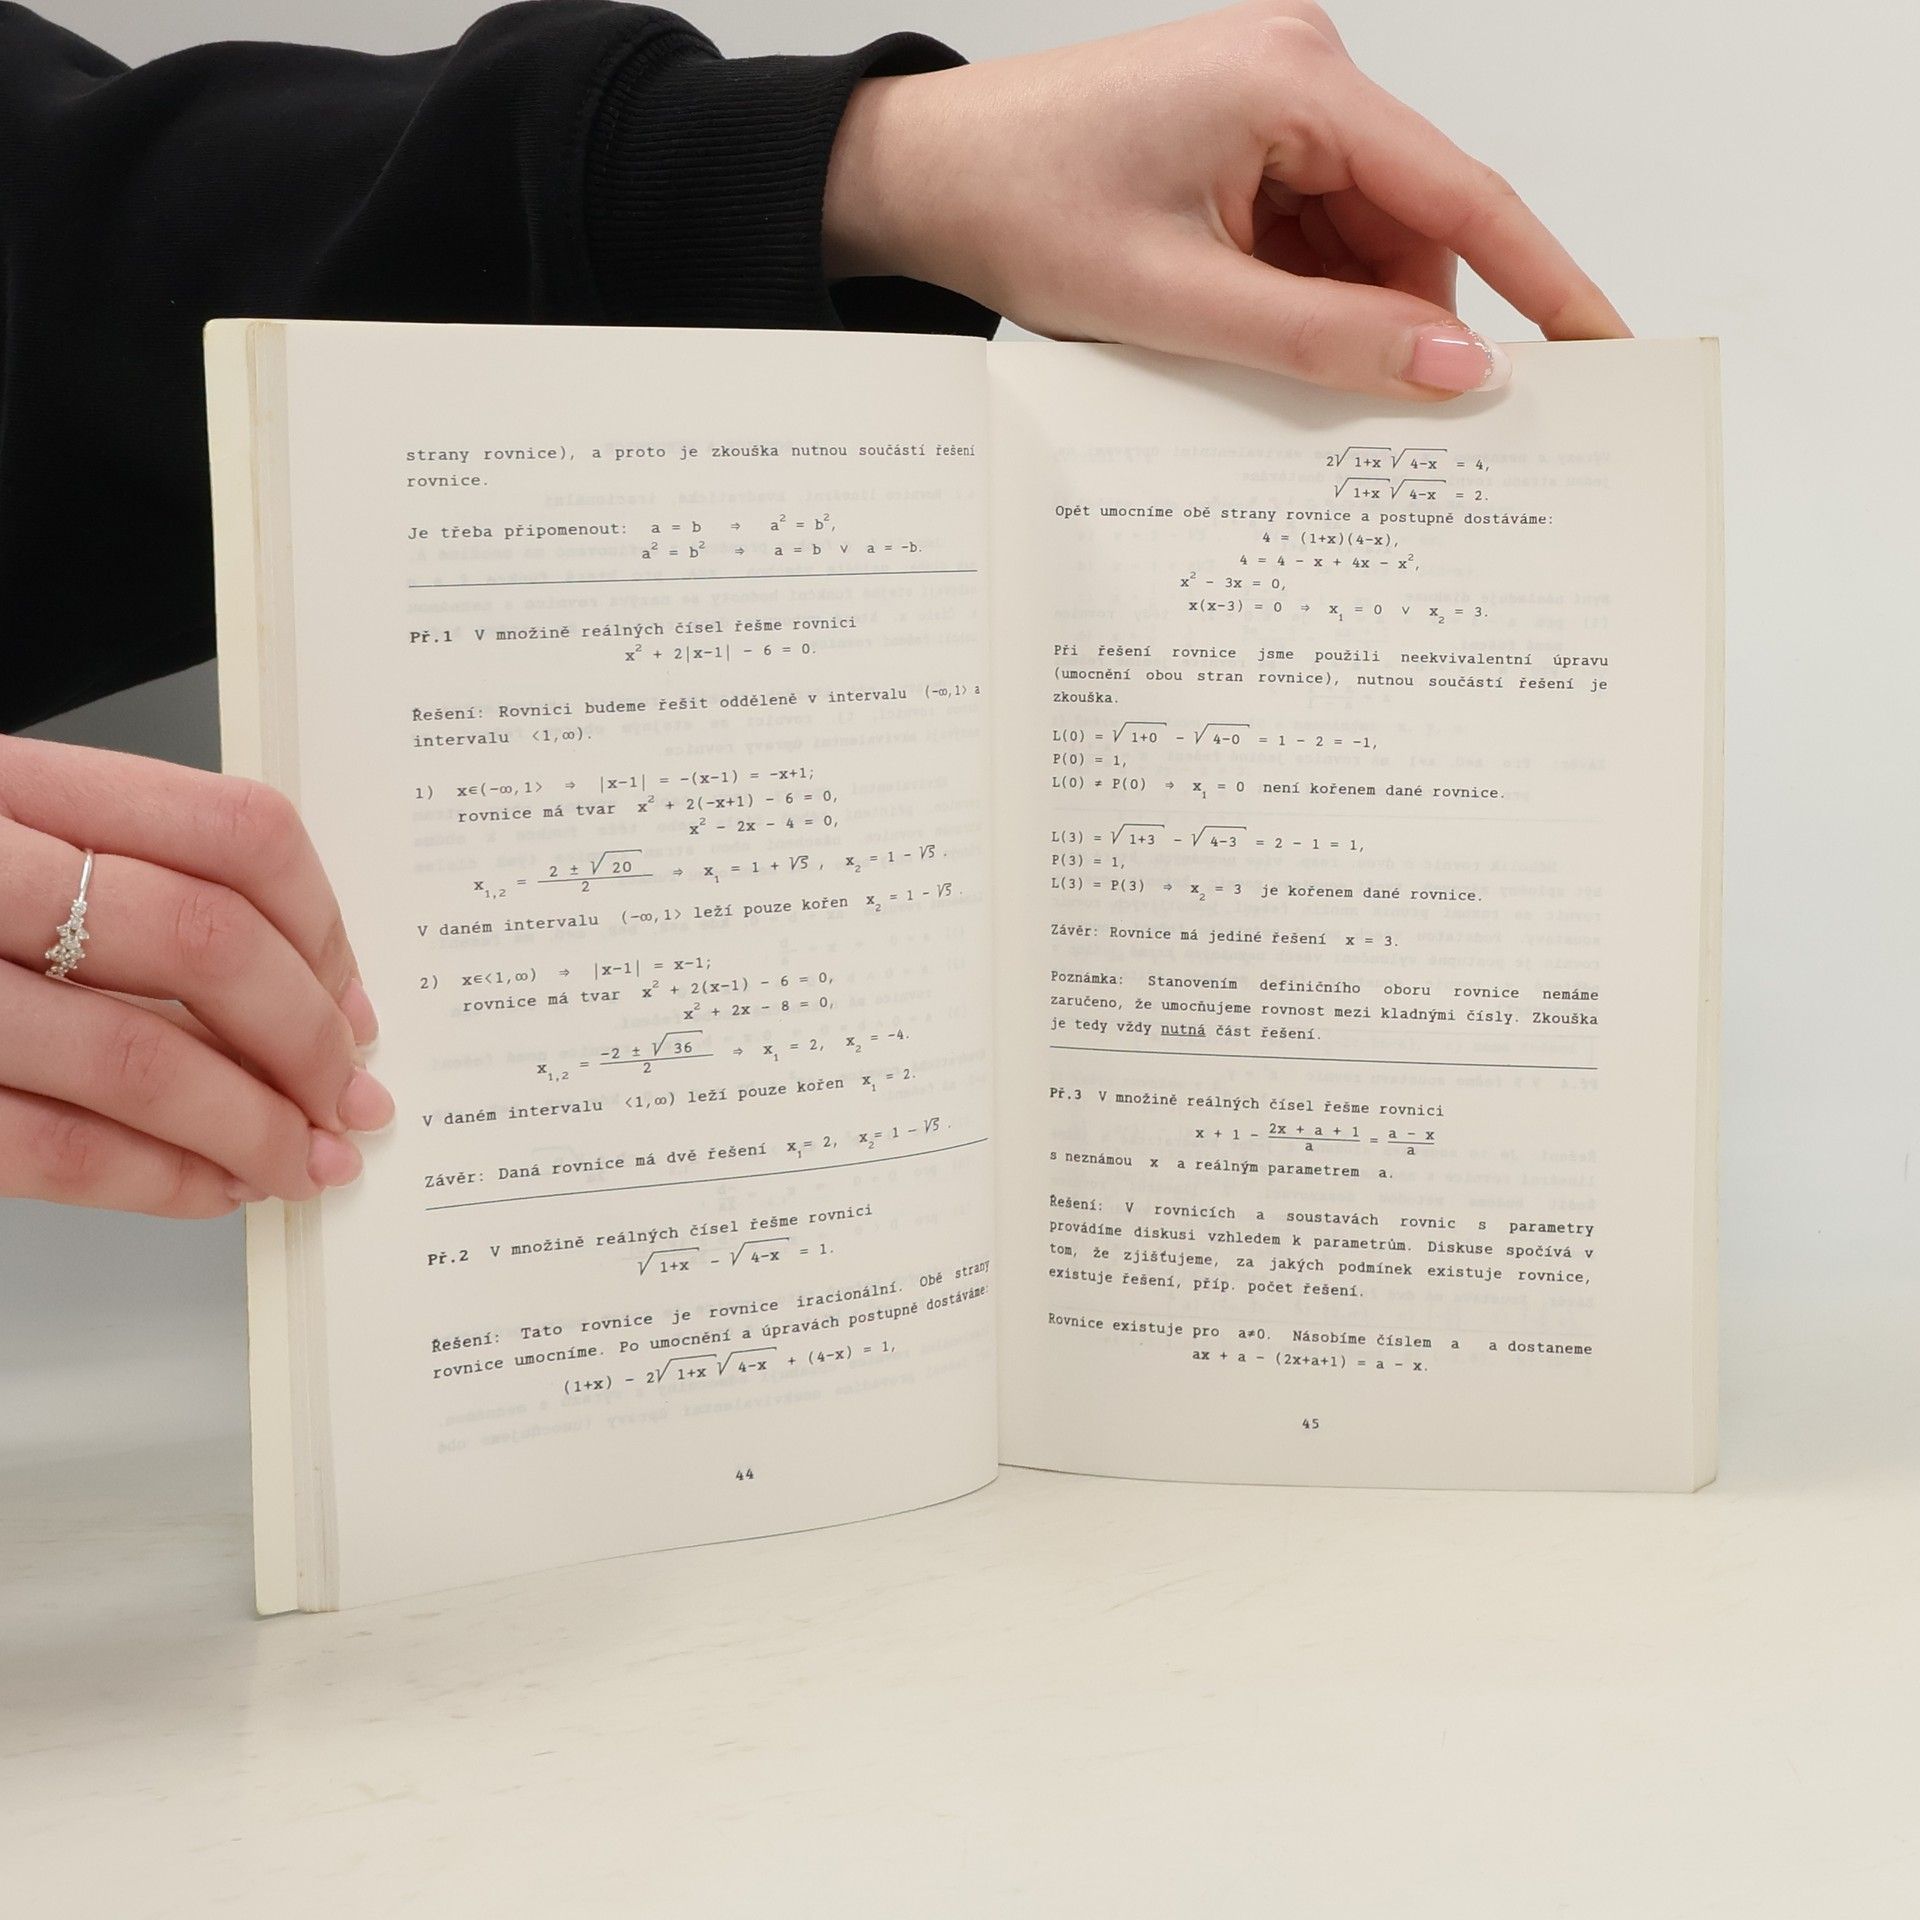 strany rovnice), a proto je zkouška nutnou součástí řešení
rovnice.
Je třeba připomenout: a = b ⇒ a² = b²,
a² = b² ⇒ a = b ∨ a = -b.
Př.1 V množině reálných čísel řešme rovnici
x² + 2|x-1| - 6 = 0.
Řešení: Rovnici budeme řešit odděleně v intervalu (-∞,1> a
intervalu <1,∞).
1) x∈(-∞,1> ⇒ |x-1| = -(x-1) = -x+1;
rovnice má tvar x² + 2(-x+1) - 6 = 0,
x² - 2x - 4 = 0,
x₁,₂ = (2 ± √20)/2 ⇒ x₁ = 1 + √5 , x₂ = 1 - √5 .
V daném intervalu (-∞,1> leží pouze kořen x₂ = 1 - √5 .
2) x∈<1,∞) ⇒ |x-1| = x-1;
rovnice má tvar x² + 2(x-1) - 6 = 0,
x² + 2x - 8 = 0,
x₁,₂ = (-2 ± √36)/2 ⇒ x₁ = 2, x₂ = -4.
V daném intervalu <1,∞) leží pouze kořen x₁ = 2.
Závěr: Daná rovnice má dvě řešení x₁= 2, x₂= 1 - √5 .
Př.2 V množině reálných čísel řešme rovnici
√(1+x) - √(4-x) = 1.
Řešení: Tato rovnice je rovnice iracionální. Obě strany
rovnice umocníme. Po umocnění a úpravách postupně dostáváme:
(1+x) - 2√(1+x) √(4-x) + (4-x) = 1,
44
2√(1+x) √(4-x) = 4,
√(1+x) √(4-x) = 2.
Opět umocníme obě strany rovnice a postupně dostáváme:
4 = (1+x)(4-x),
4 = 4 - x + 4x - x²,
x² - 3x = 0,
x(x-3) = 0 ⇒ x₁ = 0 ∨ x₂ = 3.
Při řešení rovnice jsme použili neekvivalentní úpravu
(umocnění obou stran rovnice), nutnou součástí řešení je
zkouška.
L(0) = √(1+0) - √(4-0) = 1 - 2 = -1,
P(0) = 1,
L(0) ≠ P(0) ⇒ x₁ = 0 není kořenem dané rovnice.
L(3) = √(1+3) - √(4-3) = 2 - 1 = 1,
P(3) = 1,
L(3) = P(3) ⇒ x₂ = 3 je kořenem dané rovnice.
Závěr: Rovnice má jediné řešení x = 3.
Poznámka: Stanovením definičního oboru rovnice nemáme
zaručeno, že umocňujeme rovnost mezi kladnými čísly. Zkouška
je tedy vždy nutná část řešení.
Př.3 V množině reálných čísel řešme rovnici
x + 1 - (2x + a + 1)/a = (a - x)/a
s neznámou x a reálným parametrem a.
Řešení: V rovnicích a soustavách rovnic s parametry
provádíme diskusi vzhledem k parametrům. Diskuse spočívá v
tom, že zjišťujeme, za jakých podmínek existuje rovnice,
existuje řešení, příp. počet řešení.
Rovnice existuje pro a≠0. Násobíme číslem a a dostaneme
ax + a - (2x+a+1) = a - x.
45